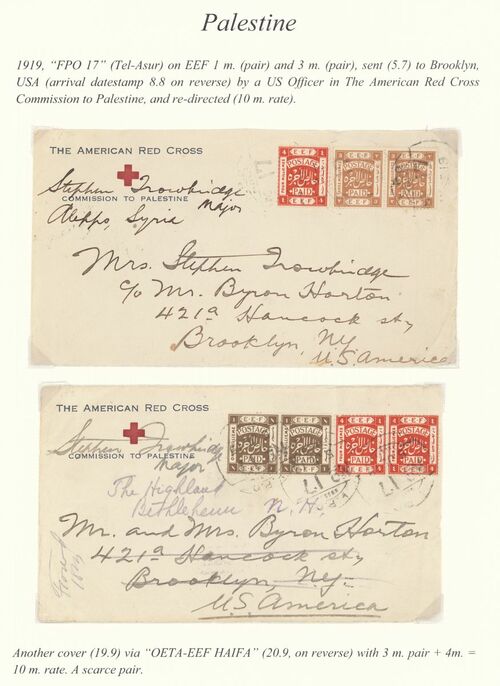 Palestine
1919, “FPO 17” (Tel-Asur) on EEF 1 m. (pair) and 3 m. (pair), sent (5.7) to Brooklyn,
USA (arrival datestamp 8.8 on reverse) by a US Officer in The American Red Cross
Commission to Palestine, and re-directed (10 m. rate).
THE AMERICAN RED CROSS
Stephen Trowbridge
COMMISSION TO PALESTINE
Major
Aleppo, Syria
E.E.F
POSTAGE
خالص الاجرة
PAID
E.E.F
POSTAGE
خالص الاجرة
PAID
E.E.F
POSTAGE
خالص الاجرة
PAID
Mrs. Stephen Trowbridge
c/o Mr. Byron Horton
421a Hancock St,
Brooklyn, NY
U.S. America
THE AMERICAN RED CROSS
Stephen Trowbridge
COMMISSION TO PALESTINE
Major
E.E.F
POSTAGE
خالص الاجرة
PAID
E.E.F
POSTAGE
خالص الاجرة
PAID
E.E.F
POSTAGE
خالص الاجرة
PAID
E.E.F
POSTAGE
خالص الاجرة
PAID
The Highland
Bethlehem N. H.
Mr. and Mrs. Byron Horton
421a Hancock St,
Brooklyn, NY.
U.S. America
Another cover (19.9) via “OETA-EEF HAIFA” (20.9, on reverse) with 3 m. pair + 4m. =
10 m. rate. A scarce pair.